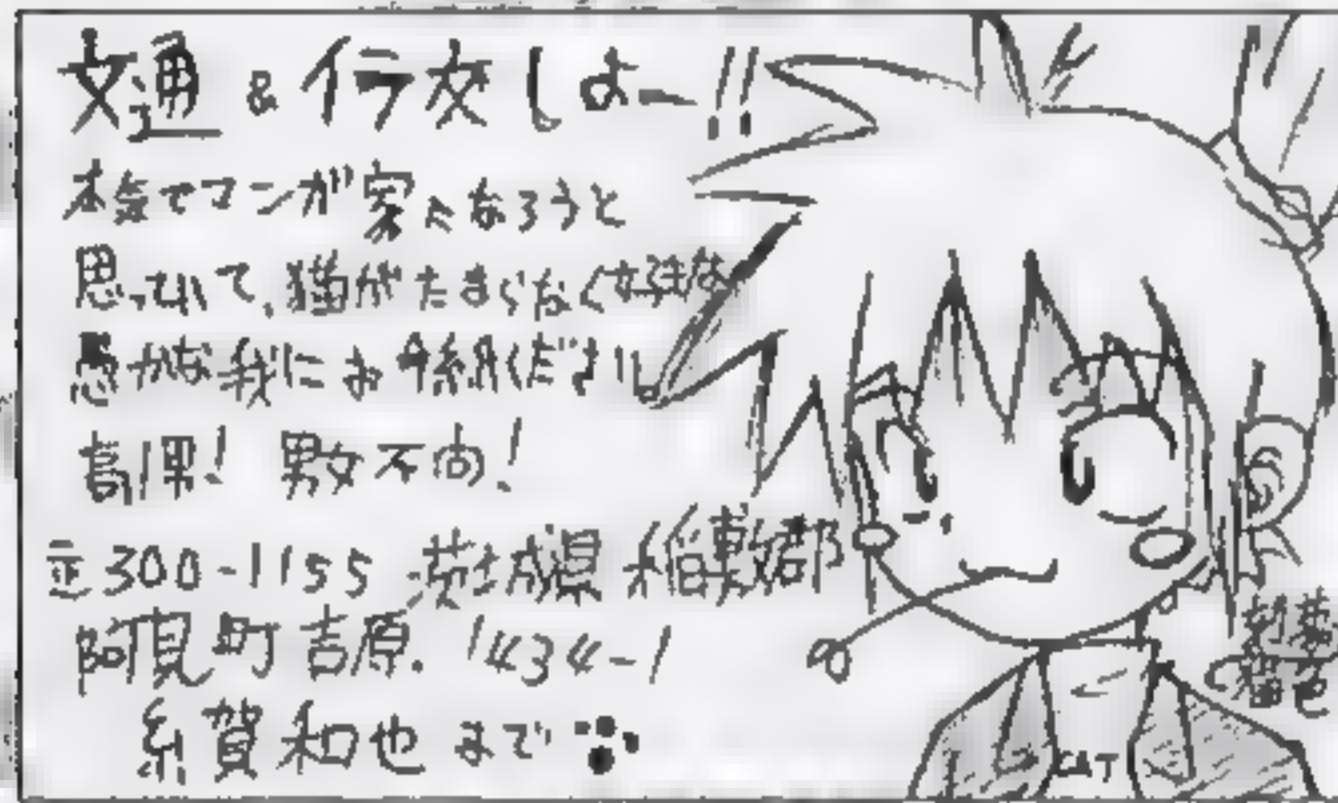 文通&イラ交しよー!!
本気でマンガ家になろうと
思っていて、猫がたまらなく好きな
愚かな我にお手紙ください。
高1男! 男女不問!
〒300-1155 茨城県稲敷郡
阿見町吉原1434-1
賀和也まで
CAT